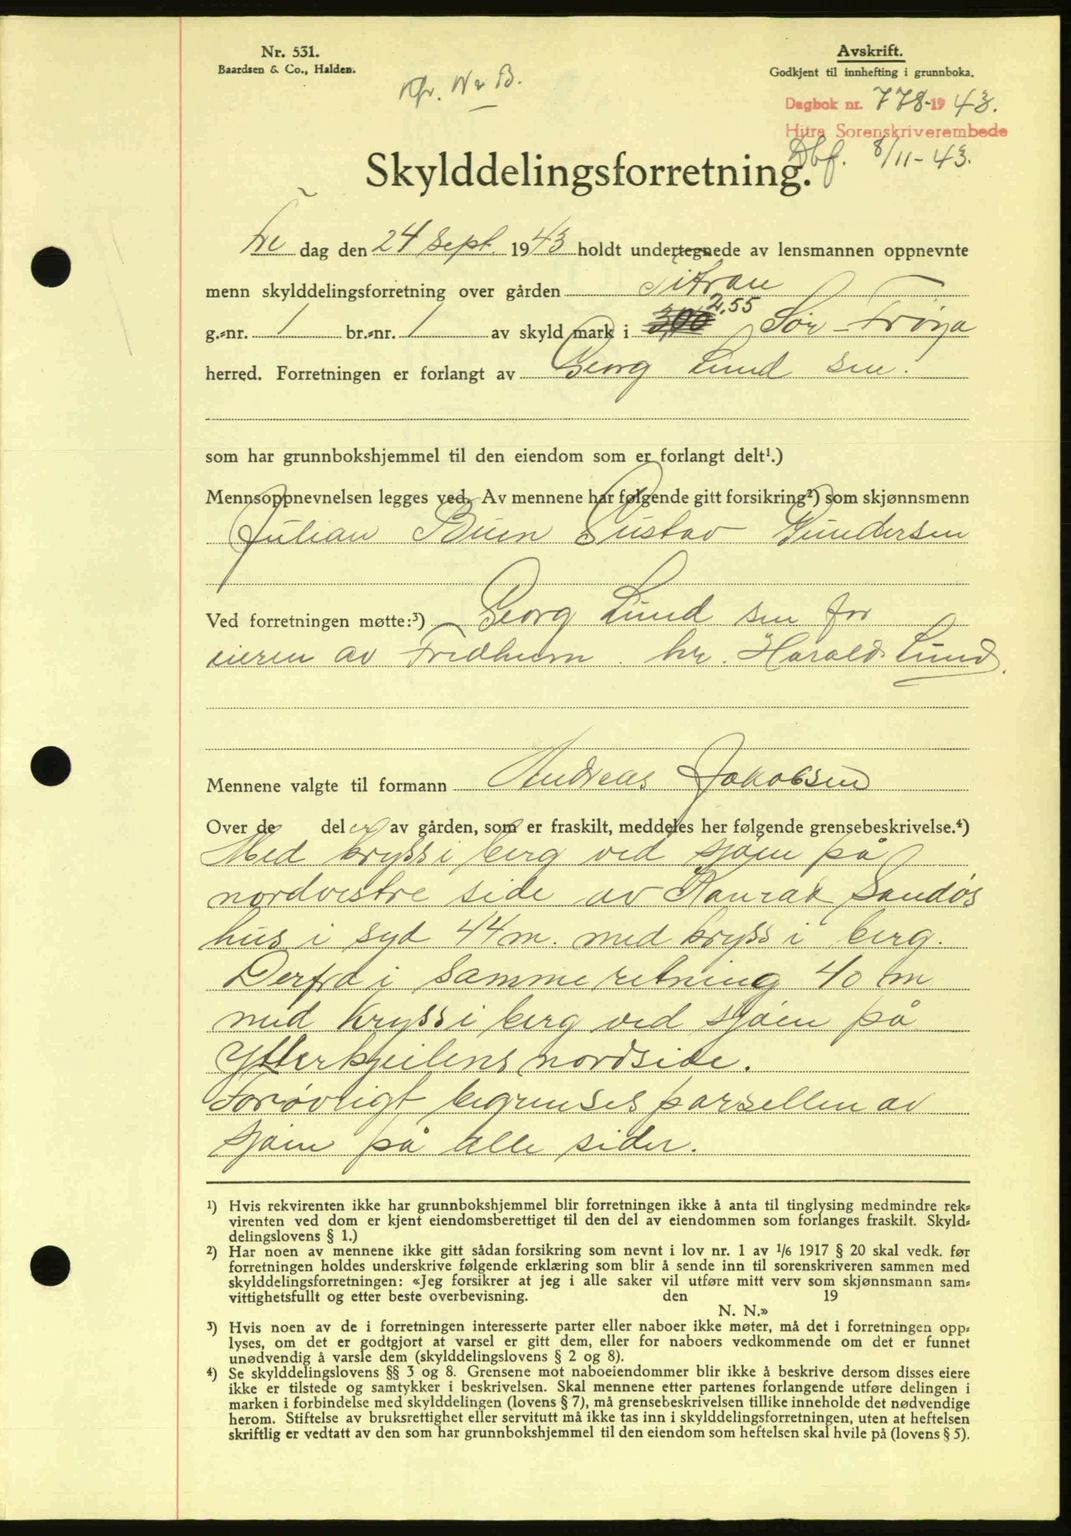 Nr. 531.
Baardsen & Co., Halden.
Avskrift.
Godkjent til innhefting i grunnboka.
Dagbok nr. 778-1943.
Hitra Sorenskriverembede
Dbf. 8/11-43.
Skylddelingsforretning.
Fre dag den 24 Sept. 1943 holdt undertegnede av lensmannen oppnevnte
menn skylddelingsforretning over gården Titran
g.-nr. 1 br.-nr. 1 av skyld mark i 2,55 Sør-Frøya
herred. Forretningen er forlangt av Georg Lund sen.
som har grunnbokshjemmel til den eiendom som er forlangt delt¹.)
Mennsoppnevnelsen legges ved. Av mennene har følgende gitt forsikring²) som skjønnsmenn
Julian Buen Gustav Gundersen
Ved forretningen møtte:³) Georg Lund sen for
eieren av Fredheim. hr. Harald Lund.
Mennene valgte til formann Andreas Jakobsen
Over de deler av gården, som er fraskilt, meddeles her følgende grensebeskrivelse.⁴)
Med kryss i berg ved sjøen på
nordvestre side av Konrad Sandøs
hus i syd 44 m. med kryss i berg.
Derfra i samme retning 40 m
med kryss i berg ved sjøen på
Ytterkjeilens nordside.
Forøvrigt begrenses parsellen av
sjøen på alle sider.
¹) Hvis rekvirenten ikke har grunnbokshjemmel blir forretningen ikke å anta til tinglysing medmindre rek-
virenten ved dom er kjent eiendomsberettiget til den del av eiendommen som forlanges fraskilt. Skyld-
delingslovens § 1.)
²) Har noen av mennene ikke gitt sådan forsikring som nevnt i lov nr. 1 av 1/6 1917 § 20 skal vedk. før
forretningen holdes underskrive følgende erklæring som blir å sende inn til sorenskriveren sammen med
skylddelingsforretningen: «Jeg forsikrer at jeg i alle saker vil utføre mitt verv som skjønnsmann sam-
vittighetsfullt og etter beste overbevisning. den 19
N. N.»
³) Hvis noen av de i forretningen interesserte parter eller naboer ikke møter, må det i forretningen opp-
lyses, om det er godtgjort at varsel er gitt dem, eller for naboers vedkommende om det er funnet
unødvendig å varsle dem (skylddelingslovens § 2 og 8).
⁴) Se skylddelingslovens §§ 3 og 8. Grensene mot naboeiendommer blir ikke å beskrive dersom disses eiere
ikke er tilstede og samtykker i beskrivelsen. Skal mennene etter partenes forlangende utføre delingen i
marken i forbindelse med skylddelingen (lovens § 7), må grensebeskrivelsen tillike inneholde det nødvendige
herom. Stiftelse av bruksrettighet eller servitutt må ikke tas inn i skylddelingsforretningen, uten at heftelsen
skriftlig er vedtatt av den som har grunnbokshjemmel til den eiendom som heftelsen skal hvile på (lovens § 5).